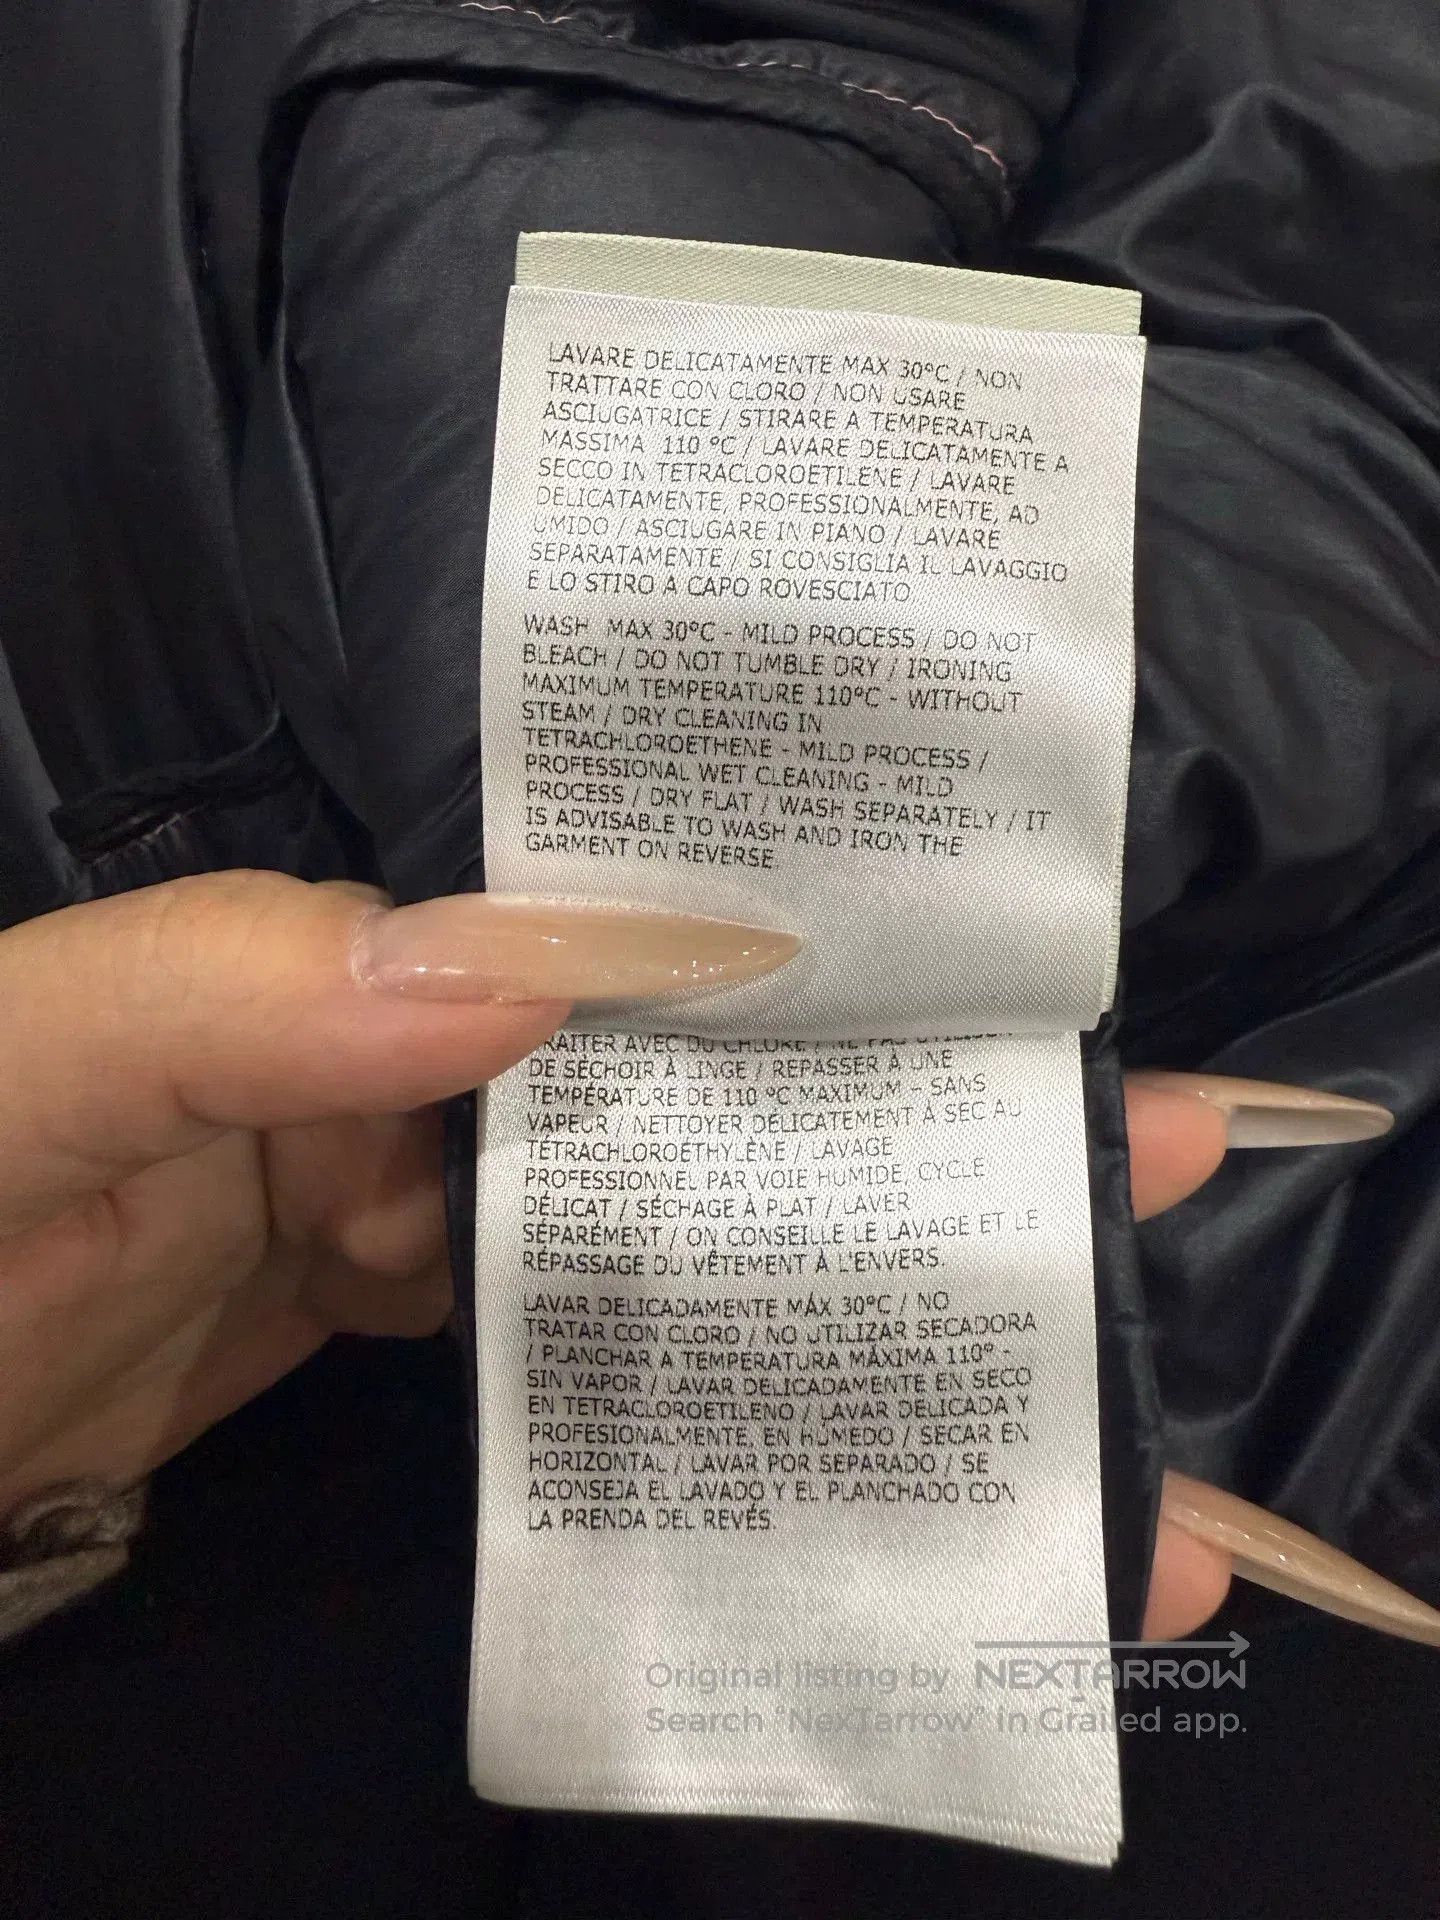 LAVARE DELICATAMENTE MAX 30°C / NON
TRATTARE CON CLORO / NON USARE
ASCIUGATRICE / STIRARE A TEMPERATURA
MASSIMA 110 °C / LAVARE DELICATAMENTE A
SECCO IN TETRACLOROETILENE / LAVARE
DELICATAMENTE, PROFESSIONALMENTE, AD
UMIDO / ASCIUGARE IN PIANO / LAVARE
SEPARATAMENTE / SI CONSIGLIA IL LAVAGGIO
E LO STIRO A CAPO ROVESCIATO
WASH MAX 30°C - MILD PROCESS / DO NOT
BLEACH / DO NOT TUMBLE DRY / IRONING
MAXIMUM TEMPERATURE 110°C - WITHOUT
STEAM / DRY CLEANING IN
TETRACHLOROETHENE - MILD PROCESS /
PROFESSIONAL WET CLEANING - MILD
PROCESS / DRY FLAT / WASH SEPARATELY / IT
IS ADVISABLE TO WASH AND IRON THE
GARMENT ON REVERSE
AVEC DU CHLORE /
DE SÉCHOIR À LINGE / REPASSER À UNE
TEMPÉRATURE DE 110 °C MAXIMUM - SANS
VAPEUR / NETTOYER DÉLICATEMENT À SEC AU
TÉTRACHLOROÉTHYLÈNE / LAVAGE
PROFESSIONNEL PAR VOIE HUMIDE, CYCLE
DÉLICAT / SÉCHAGE À PLAT / LAVER
SÉPARÉMENT / ON CONSEILLE LE LAVAGE ET LE
RÉPASSAGE DU VÊTEMENT À L'ENVERS.
LAVAR DELICADAMENTE MÁX 30°C / NO
TRATAR CON CLORO / NO UTILIZAR SECADORA
/ PLANCHAR A TEMPERATURA MÁXIMA 110° -
SIN VAPOR / LAVAR DELICADAMENTE EN SECO
EN TETRACLOROETILENO / LAVAR DELICADA Y
PROFESIONALMENTE, EN HÚMEDO / SECAR EN
HORIZONTAL / LAVAR POR SEPARADO / SE
ACONSEJA EL LAVADO Y EL PLANCHADO CON
LA PRENDA DEL REVÉS.
Original listing by NEXTARROW
Search "NexTarrow" in Grailed app.